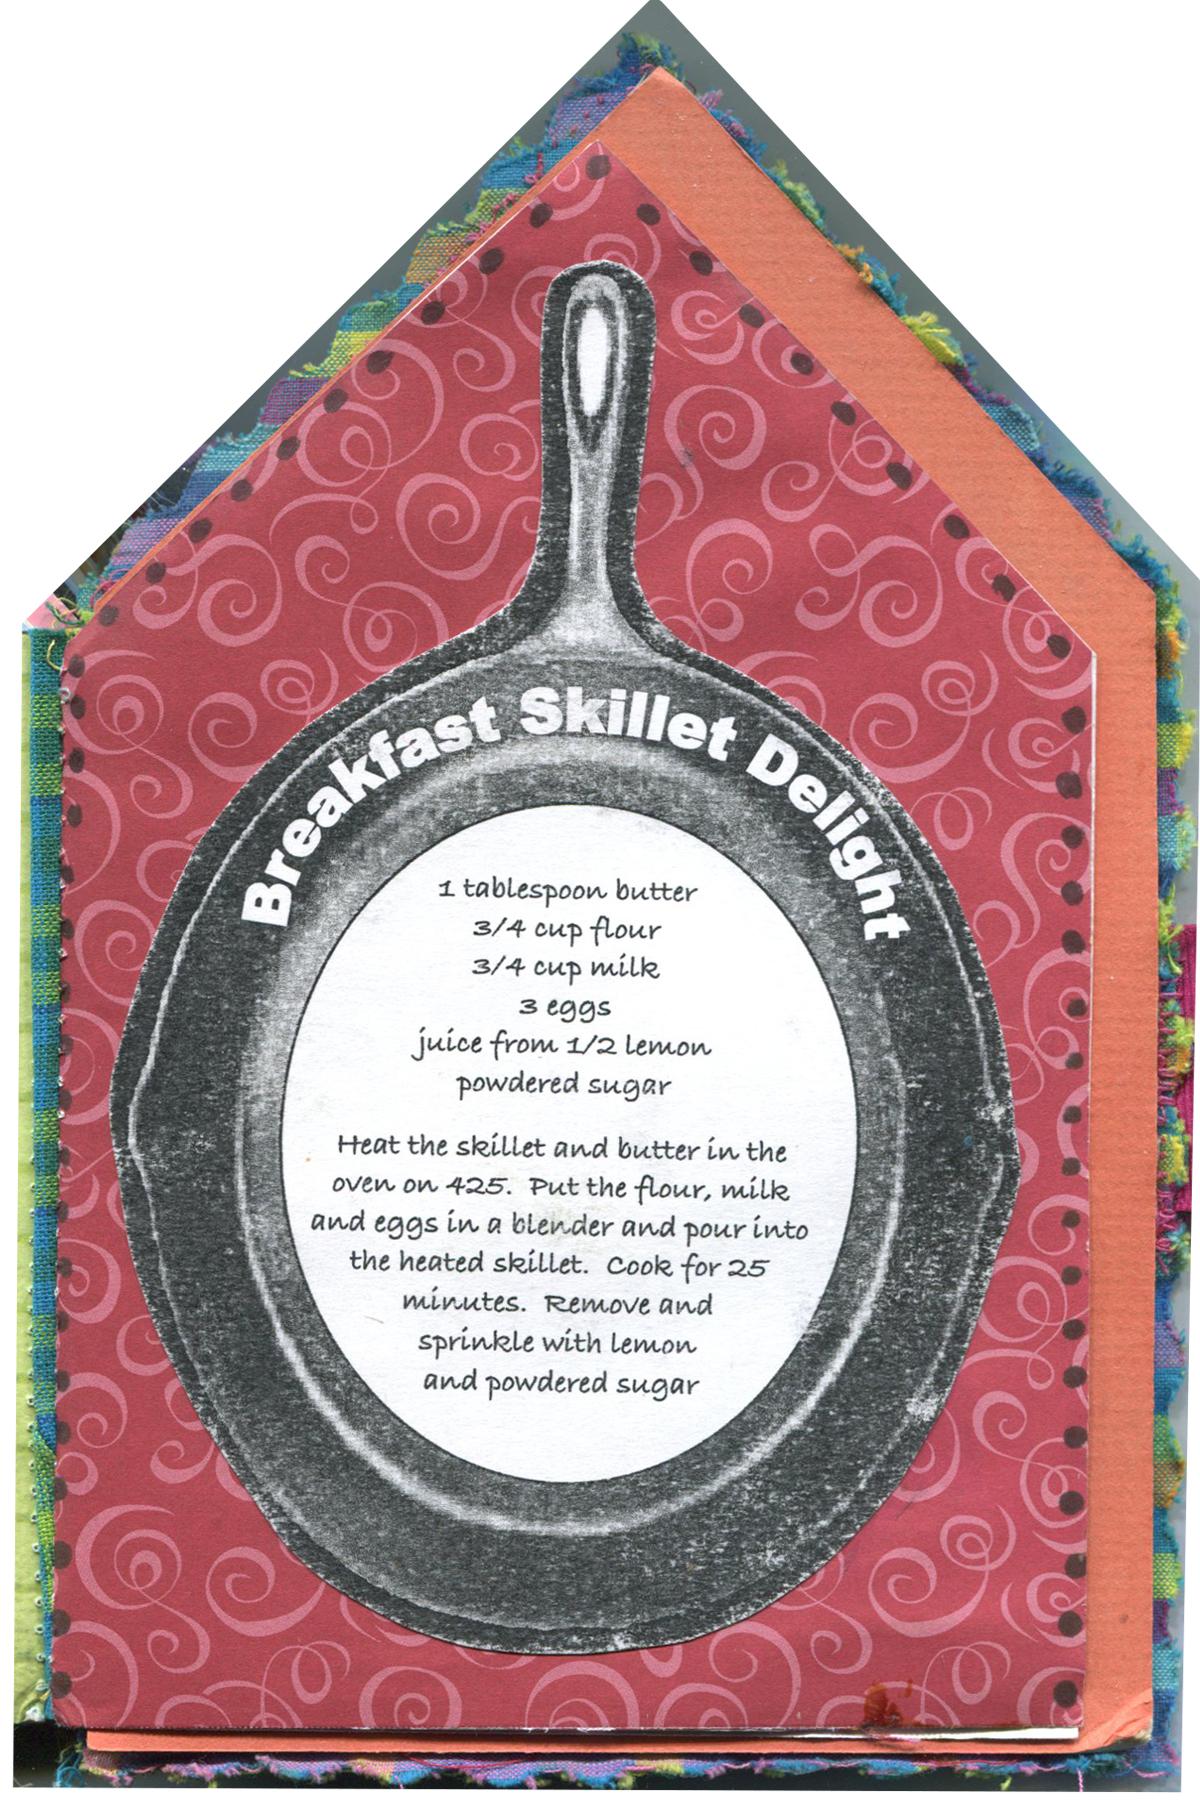 Breakfast Skillet Delight
1 tablespoon butter
3/4 cup flour
3/4 cup milk
3 eggs
juice from 1/2 lemon
powdered sugar
Heat the skillet and butter in the
oven on 425. Put the flour, milk
and eggs in a blender and pour into
the heated skillet. Cook for 25
minutes. Remove and
sprinkle with lemon
and powdered sugar